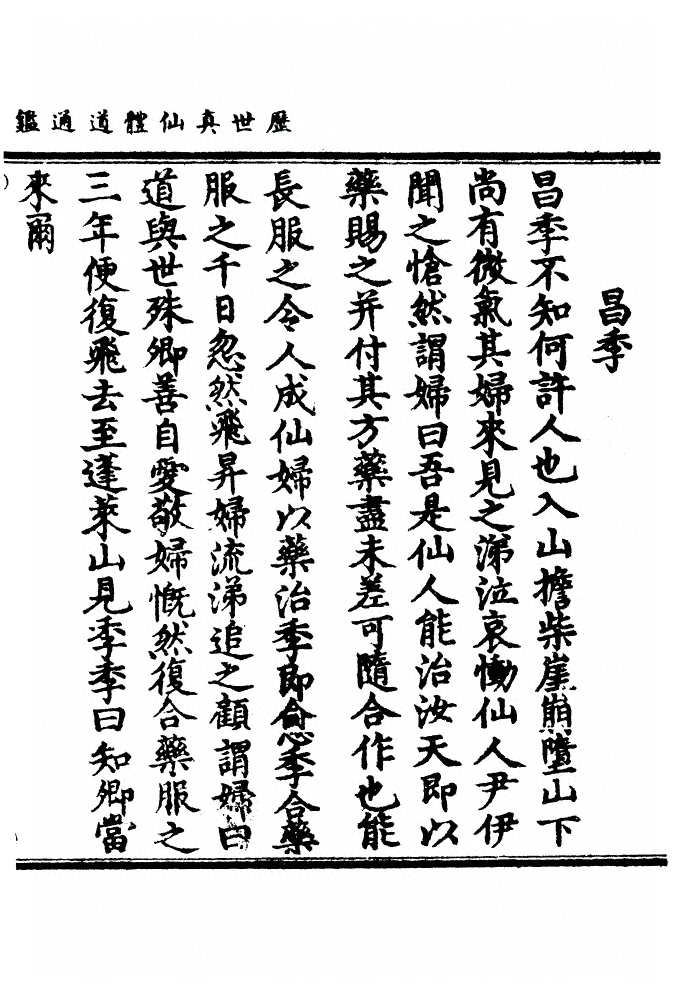 歷世真仙體道通鑑
昌季
昌季不知何許人也入山擔柴崖崩墮山下
尚有微氣其婦來見之涕泣哀慟仙人尹伊
聞之愴然謂婦曰吾是仙人能治汝天即以
藥賜之并付其方藥盡未差可隨合作也能
長服之令人成仙婦以藥治季即愈季合藥
服之千日忽然飛昇婦流涕追之顧謂婦曰
道與世殊卿善自愛敬婦慨然復合藥服之
三年便復飛去至蓬萊山見季季曰知卿當
來爾